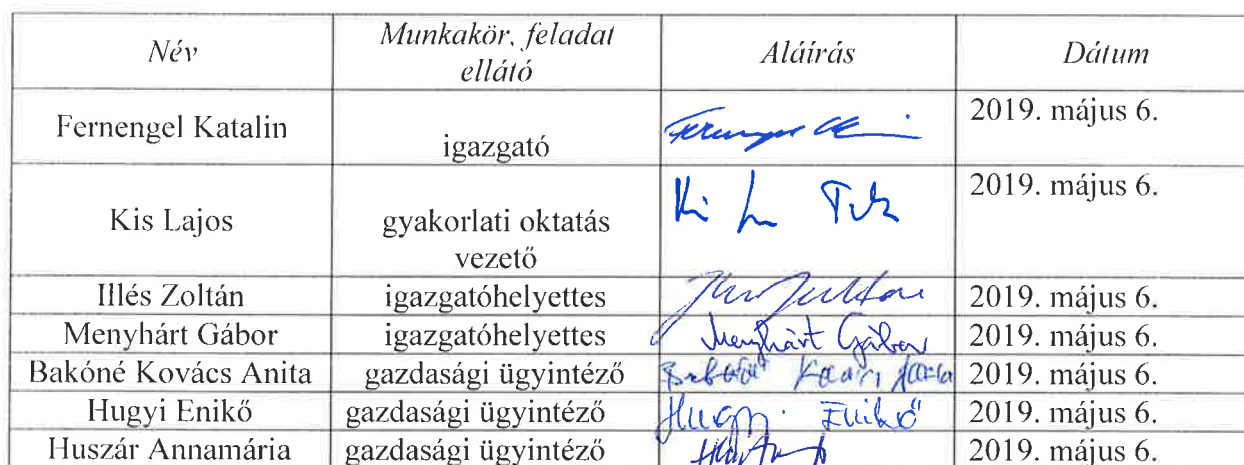 Név Munkakör, feladat ellátó Aláírás Dátum
Fernengel Katalin igazgató 2019. május 6.
Kis Lajos gyakorlati oktatás vezető 2019. május 6.
Illés Zoltán igazgatóhelyettes 2019. május 6.
Menyhárt Gábor igazgatóhelyettes Menyhárt Gábor 2019. május 6.
Bakóné Kovács Anita gazdasági ügyintéző 2019. május 6.
Hugyi Enikő gazdasági ügyintéző Hugyi Enikő 2019. május 6.
Huszár Annamária gazdasági ügyintéző 2019. május 6.